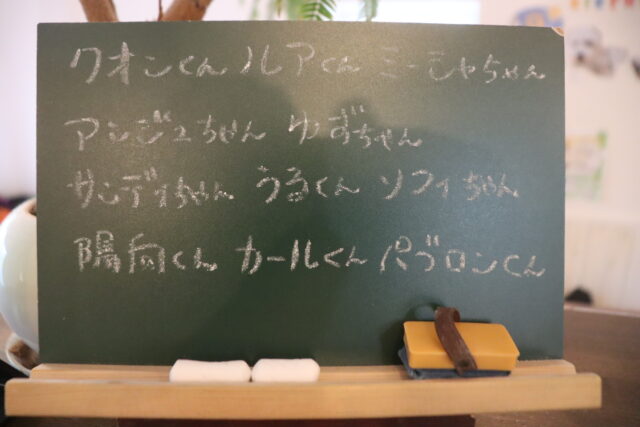 クオンくん ルアくん ミーシャちゃん
アンジュちゃん ゆずちゃん
サンディちゃん うるくん ソフィちゃん
陽向くん カールくん パブロンくん